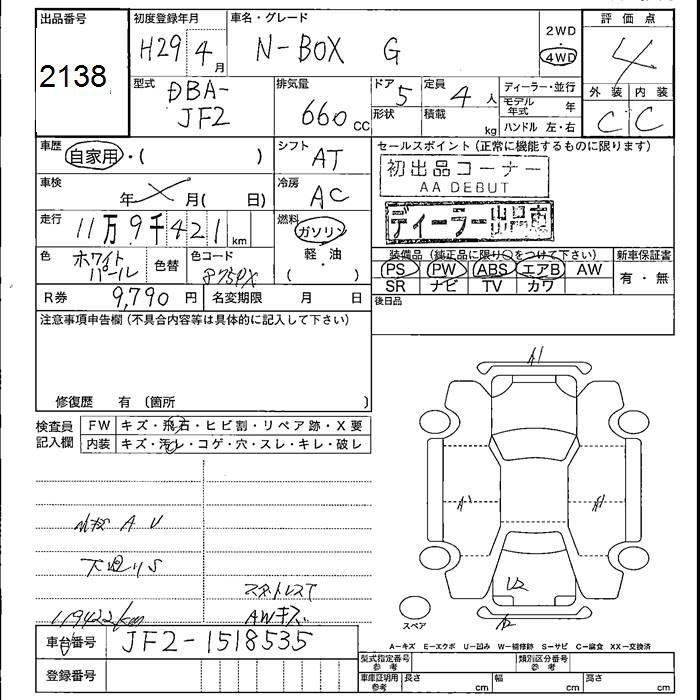 出品番号
2138
初度登録年月
H29 4月
車名・グレード
N-BOX G
2WD
・
4WD
評価点
4
外装 内装
C C
型式
DBA-
JF2
排気量
660 cc
ドア 5
形状
定員 4 人
積載 kg
ディーラー・並行
モデル年式 年
ハンドル 左・右
車歴
自家用・( )
シフト
AT
セールスポイント(正常に機能するものに限ります)
初出品コーナー
AA DEBUT
車検
年 月( 日)
冷房
AC
走行
11万9千421km
燃料
ガソリン
軽・油
( )
色
ホワイト
パール
色替
色コード
875PX
装備品(純正品に限り○をつけて下さい)
PS PW ABS エアB AW
SR ナビ TV カワ
新車保証書
有・無
R券 9,790 円
名変期限 月 日
後日品
注意事項申告欄(不具合内容等は具体的に記入して下さい)
修復歴 有 〔箇所 〕
検査員
記入欄
FW キズ・飛石・ヒビ割・リペア跡・X要
内装 キズ・汚レ・コゲ・穴・スレ・キレ・破レ
A U
下廻りS
スタットレスT
119422km
AWキズ
A1
U2
スペア
A-キズ E-エクボ U-凹み W-補修跡 S-サビ C-腐食 XX-交換済
車台番号 JF2-1518535
登録番号
型式指定番号
参考
類別区分番号
参考
車庫証明用
参考
長さ cm
幅 cm
高さ cm